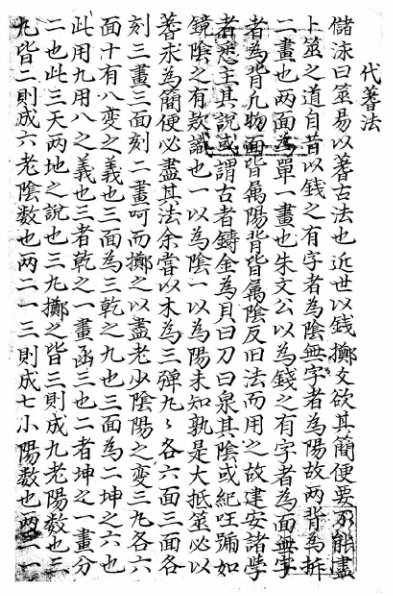 代蓍法
儲泳曰筮易以蓍古法也近世以錢擲爻欲其簡便要不能盡
卜筮之道自昔以錢之有字者為陰無字者為陽故兩背為拆
二畫也两面為單一畫也朱文公以為錢之有字者為面無字
者為背凡物面皆屬陽背皆屬陰反旧法而用之故建安諸學
者悉主其說或謂古者鑄金為貝曰刀曰泉其陰或紀国號如
鏡陰之有款識也一以為陰一以為陽未知孰是大抵筮必以
蓍求為簡便必盡其法余嘗以木為三彈丸〻各六面三面各
刻三畫三面刻二畫呵而擲之以盡老少陰陽之变三丸各六
面十有八变之義也三面為三乾之九也三面為二坤之六也
此用九用八之義也三者乾之一畫函三也二者坤之一畫分
二也此三天两地之說也三丸擲之皆三則成九老陽数也三
丸皆二則成六老陰数也两二一三則成七小陽数也两三一